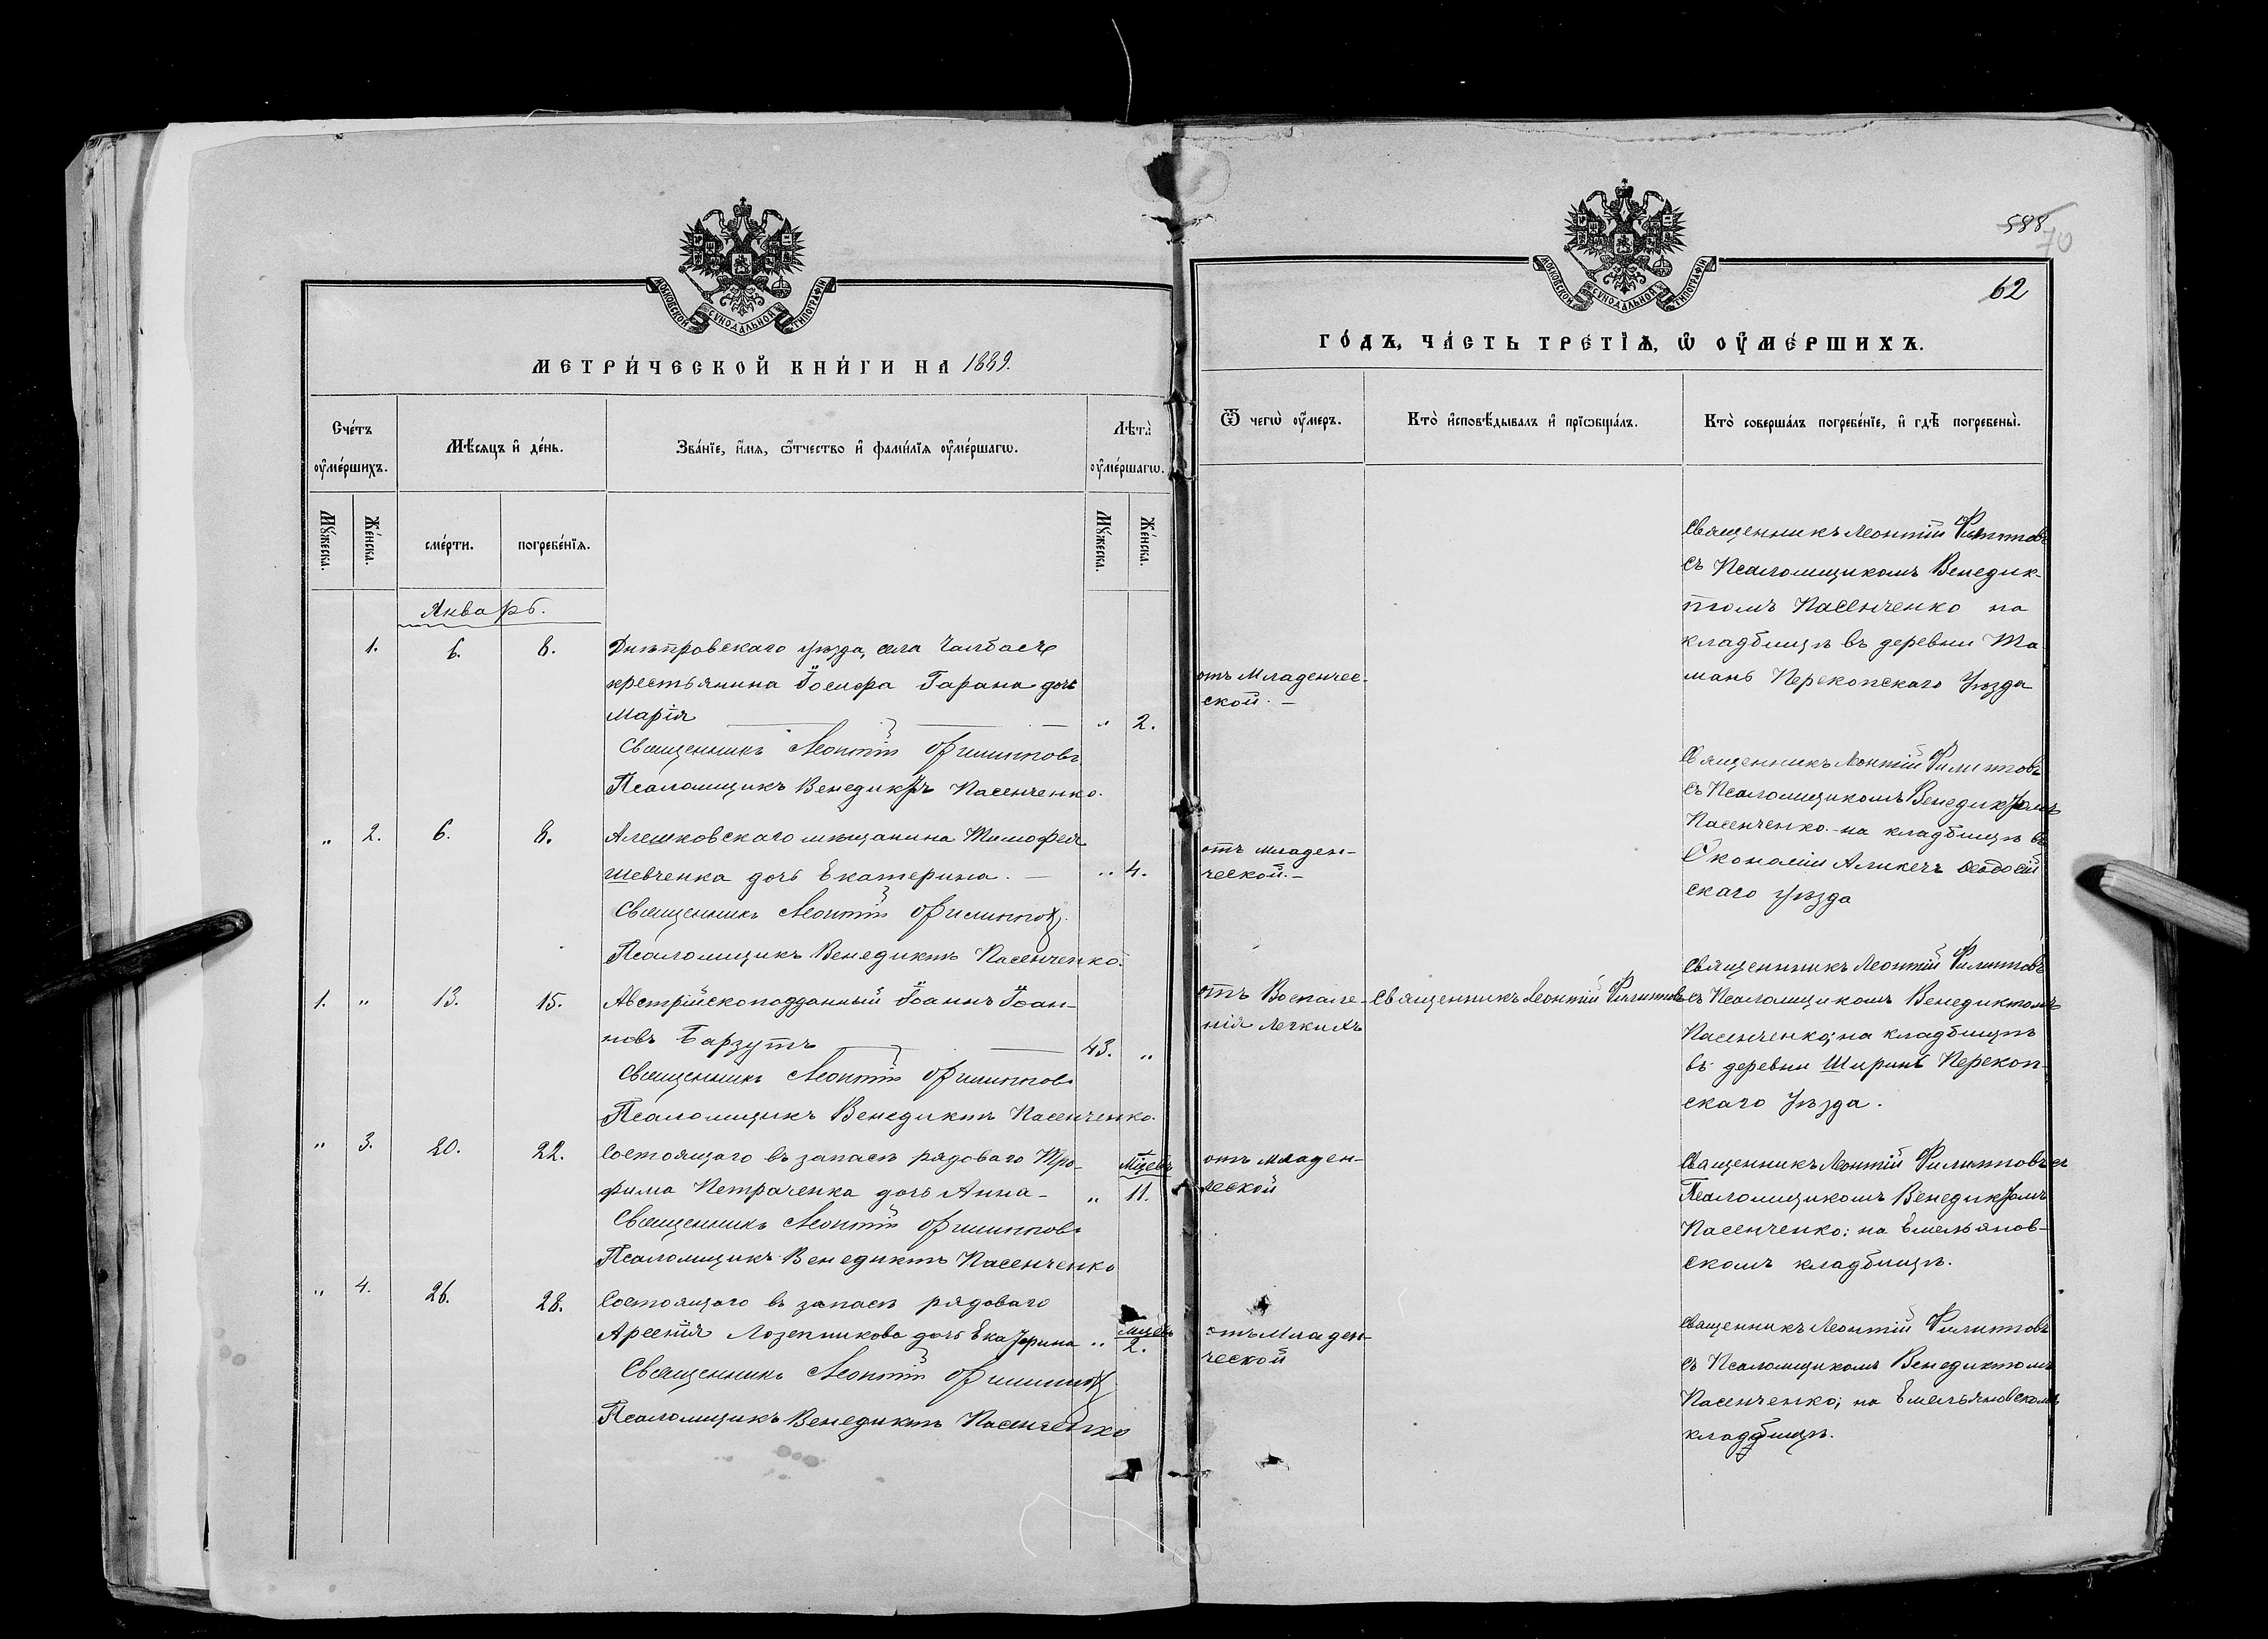 МОСКОВСКОЙ СѴНОДАЛЬНОЙ ТИПОГРАФІИ
МЕТРИ́ЧЕСКОЙ КНИ́ГИ НА 1889.
Сче́тъ ᲂу҆ме́ршихъ.
Мѣ́сяцъ и҆ де́нь.
Зва́нїе, и҆́мя, ѻ҆́тчество и҆ фами́лїя ᲂу҆ме́ршагѡ.
Лѣта̀ ᲂу҆ме́ршагѡ.
Мꙋ́жеска.
Же́нска.
сме́рти.
погребе́нїя.
Мꙋ́жеска.
Же́нска.
Январь.
1.
6.
8.
Днѣпровскаго уѣзда, села Чалбасъ
крестьянина Іосифа Гарана дочь
Марія
„ 2.
Священникъ Леонтій Филипповъ
Псаломщикъ Венедиктъ Пасенченко.
„ 2. 6. 8.
Алешковскаго мѣщанина Тимофея
Шевченка дочь Екатерина.
„ 4.
Священникъ Леонтій Филипповъ.
Псаломщикъ Венедиктъ Пасенченко.
1. „ 13. 15.
Австрійскоподданный Іоаннъ Іоан-
новъ Барзутъ
43. „
Священникъ Леонтій Филипповъ
Псаломщикъ Венедиктъ Пасенченко.
„ 3. 20. 22.
Состоящаго въ запасѣ рядоваго Тро-
фима Петраченка дочь Анна-
Мѣцевъ
„ 11.
Священникъ Леонтій Филипповъ
Псаломщикъ Венедиктъ Пасенченко
„ 4. 26. 28.
Состоящаго въ запасѣ рядоваго
Арсенія дочь Екатерина
„ 2.
Священникъ Леонтій Филипповъ
Псаломщикъ Венедиктъ Пасенченко
588
70
62
МОСКОВСКОЙ СѴНОДАЛЬНОЙ ТИПОГРАФІИ
ГО́ДЪ, ЧА́СТЬ ТРЕ́ТІѦ, Ѡ҆ ОУ҆МЕ́РШИХЪ.
Ѿ чегѡ̀ ᲂу҆́меръ.
Кто̀ и҆сповѣ́дывалъ и҆ прїѡбща́лъ.
Кто̀ соверша́лъ погребе́нїе, и҆ гдѣ̀ погребены̀.
отъ Младенчес-
ской.
Священникъ Леонтій Филипповъ
съ Псаломщикомъ Венедик-
томъ Пасенченко на
кладбищѣ въ деревни Та
мань Перекопскаго Уѣзда
отъ младен-
ческой.
Священникъ Леонтій Филипповъ
съ Псаломщикомъ Венедиктомъ
Пасенченко. на кладбищѣ въ
Экономіи Аликечъ Ѳеодосій
скаго уѣзда
отъ Воспале-
нія Легкихъ
Священникъ Леонтій Филипповъ
Священникъ Леонтій Филипповъ
съ Псаломщикомъ Венедиктомъ
Пасенченко; на кладбищѣ
въ деревни Ширинъ Перекоп-
скаго Уѣзда.
отъ младен-
ческой
Священникъ Леонтій Филипповъ съ
Псаломщикомъ Венедиктомъ
Пасенченко: на Емельянов-
скомъ кладбищѣ.
отъ Младен-
ческой
Священникъ Леонтій Филипповъ
съ Псаломщикомъ Венедиктомъ
Пасенченко; на Емельяновскомъ
кладбищѣ.